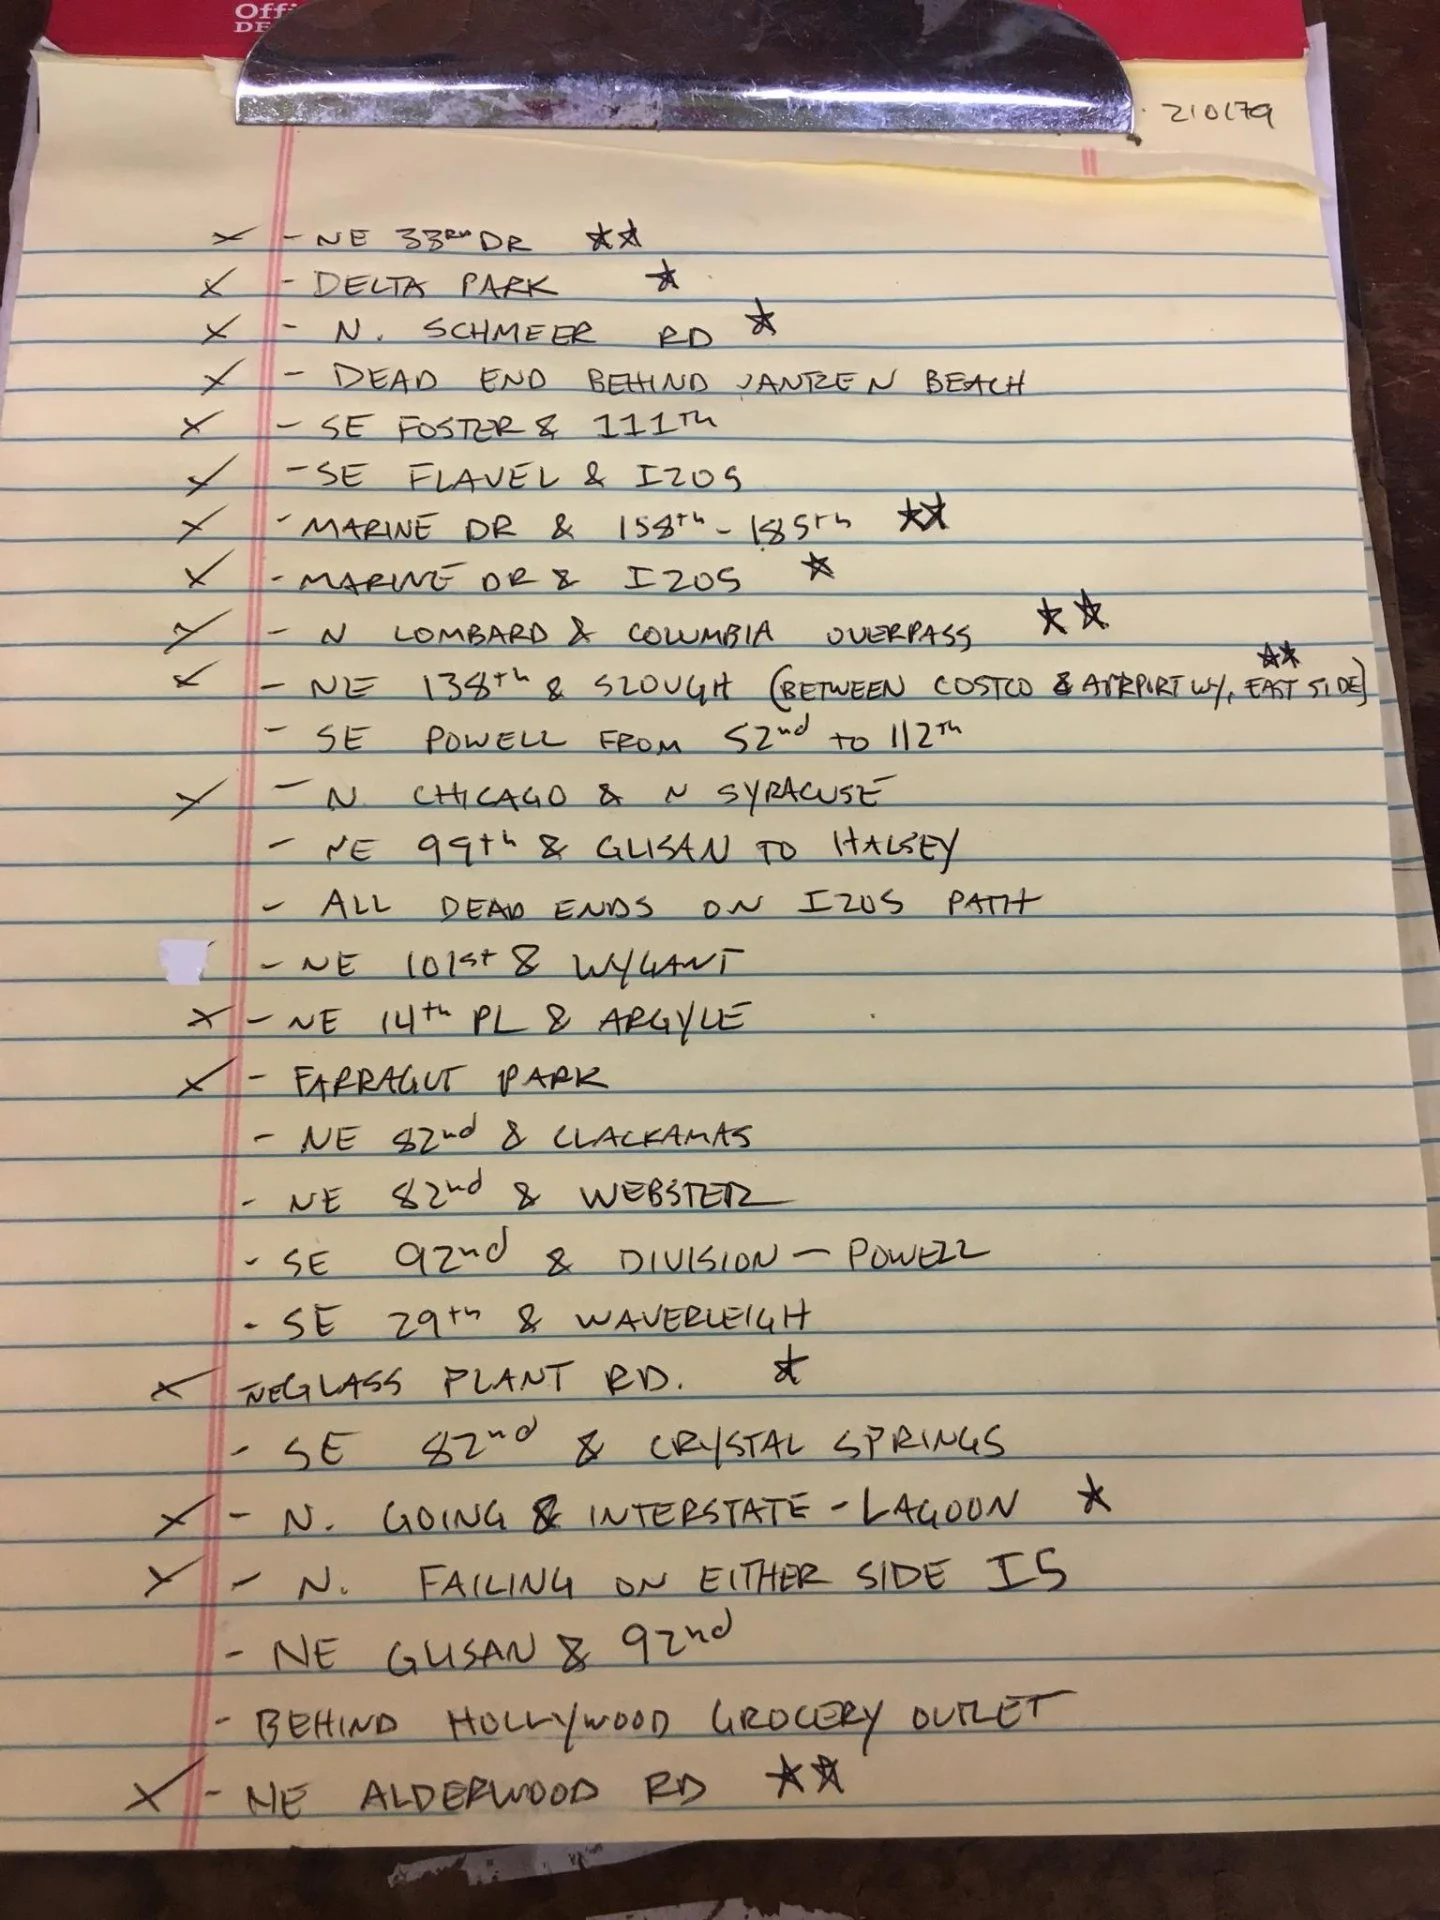 Offi
DE
210179
X - NE 33RD DR ★★
X - DELTA PARK ★
X - N. SCHMEER RD ★
X - DEAD END BEHIND JANTZEN BEACH
X - SE FOSTER & 111TH
X - SE FLAVEL & I205
X - MARINE DR & 158th - 185th ★★
X - MARINE DR & I205 ★
X - N LOMBARD & COLUMBIA OVERPASS ★★
X - NE 138th & SLOUGH (BETWEEN COSTCO & AIRPORT WY, EAST SIDE) ★★
- SE POWELL FROM 52nd TO 112th
X - N. CHICAGO & N SYRACUSE
- NE 99th & GLISAN TO HALSEY
- ALL DEAD ENDS ON I205 PATH
- NE 101st & WYGANT
X - NE 14th PL & ARGYLE
X - FARRAGUT PARK
- NE 82nd & CLACKAMAS
- NE 82nd & WEBSTER
- SE 92nd & DIVISION - POWELL
- SE 29th & WAVERLEIGH
X NE GLASS PLANT RD. ★
- SE 82nd & CRYSTAL SPRINGS
X - N. GOING & INTERSTATE - LAGOON ★
X - N. FAILING ON EITHER SIDE I5
- NE GLISAN & 92nd
- BEHIND HOLLYWOOD GROCERY OUTLET
X - NE ALDERWOOD RD ★★